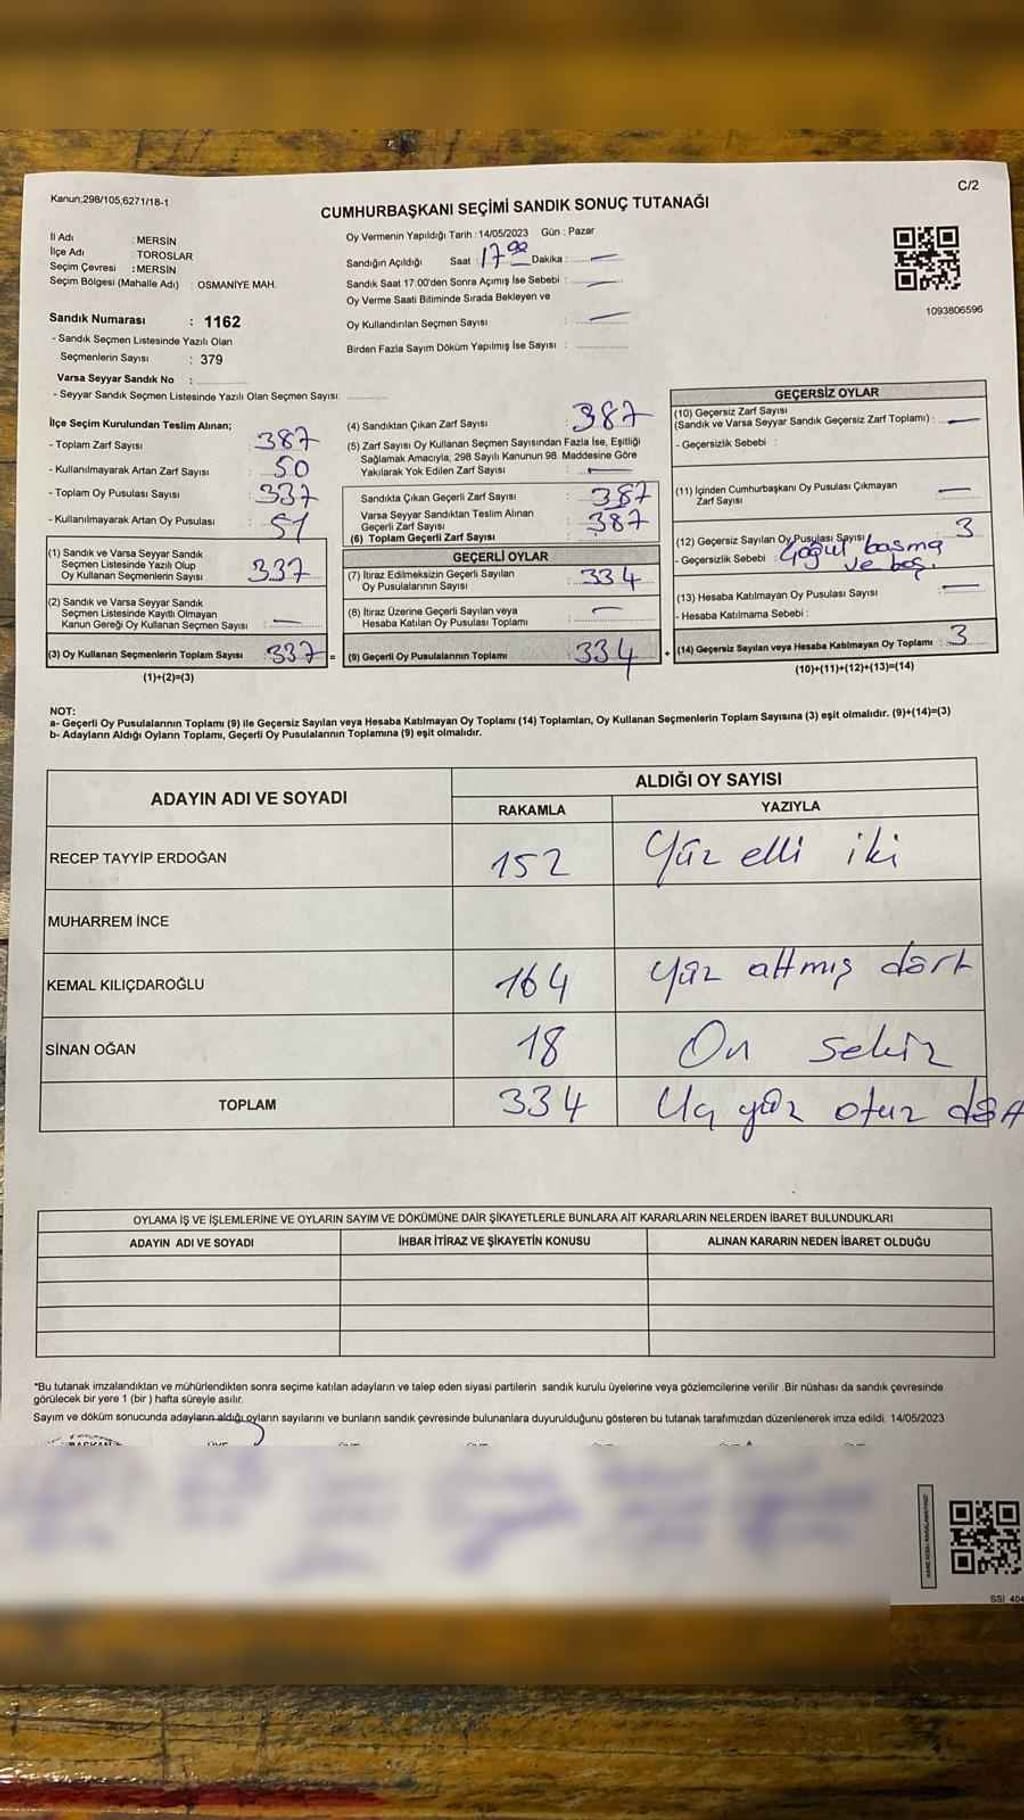 Kanun;298/105,6271/18-1
C/2
CUMHURBAŞKANI SEÇİMİ SANDIK SONUÇ TUTANAĞI
İl Adı : MERSİN
İlçe Adı : TOROSLAR
Seçim Çevresi : MERSİN
Seçim Bölgesi (Mahalle Adı) : OSMANİYE MAH.
Sandık Numarası : 1162
- Sandık Seçmen Listesinde Yazılı Olan
Seçmenlerin Sayısı : 379
Varsa Seyyar Sandık No :
- Seyyar Sandık Seçmen Listesinde Yazılı Olan Seçmen Sayısı
Oy Vermenin Yapıldığı Tarih : 14/05/2023 Gün : Pazar
Sandığın Açıldığı Saat : 17 00 Dakika : —
Sandık Saat 17:00'den Sonra Açımış İse Sebebi : —
Oy Verme Saati Bitiminde Sırada Bekleyen ve
Oy Kullandırılan Seçmen Sayısı : —
Birden Fazla Sayım Döküm Yapılmış İse Sayısı :
1093806596
İlçe Seçim Kurulundan Teslim Alınan;
- Toplam Zarf Sayısı : 387
- Kullanılmayarak Artan Zarf Sayısı : 50
- Toplam Oy Pusulası Sayısı : 337
- Kullanılmayarak Artan Oy Pusulası : 51
(1) Sandık ve Varsa Seyyar Sandık
Seçmen Listesinde Yazılı Olup
Oy Kullanan Seçmenlerin Sayısı : 337
(2) Sandık ve Varsa Seyyar Sandık
Seçmen Listesinde Kayıtlı Olmayan
Kanun Gereği Oy Kullanan Seçmen Sayısı : —
(3) Oy Kullanan Seçmenlerin Toplam Sayısı : 337 =
(1)+(2)=(3)
(4) Sandıktan Çıkan Zarf Sayısı : 387
(5) Zarf Sayısı Oy Kullanan Seçmen Sayısından Fazla İse, Eşitliği
Sağlamak Amacıyla, 298 Sayılı Kanunun 98. Maddesine Göre
Yakılarak Yok Edilen Zarf Sayısı : —
Sandıkta Çıkan Geçerli Zarf Sayısı : 387
Varsa Seyyar Sandıktan Teslim Alınan
Geçerli Zarf Sayısı : 387
(6) Toplam Geçerli Zarf Sayısı
GEÇERLİ OYLAR
(7) İtiraz Edilmeksizin Geçerli Sayılan
Oy Pusulalarının Sayısı : 334
(8) İtiraz Üzerine Geçerli Sayılan veya
Hesaba Katılan Oy Pusulası Toplamı : —
(9) Geçerli Oy Pusulalarının Toplamı : 334 +
GEÇERSİZ OYLAR
(10) Geçersiz Zarf Sayısı
(Sandık ve Varsa Seyyar Sandık Geçersiz Zarf Toplamı) : —
- Geçersizlik Sebebi :
(11) İçinden Cumhurbaşkanı Oy Pusulası Çıkmayan
Zarf Sayısı : —
(12) Geçersiz Sayılan Oy Pusulası Sayısı : 3
- Geçersizlik Sebebi : Çoğul basma
ve boş.
(13) Hesaba Katılmayan Oy Pusulası Sayısı : —
- Hesaba Katılmama Sebebi :
(14) Geçersiz Sayılan veya Hesaba Katılmayan Oy Toplamı : 3
(10)+(11)+(12)+(13)=(14)
NOT:
a- Geçerli Oy Pusulalarının Toplamı (9) ile Geçersiz Sayılan veya Hesaba Katılmayan Oy Toplamı (14) Toplamları, Oy Kullanan Seçmenlerin Toplam Sayısına (3) eşit olmalıdır. (9)+(14)=(3)
b- Adayların Aldığı Oyların Toplamı, Geçerli Oy Pusulalarının Toplamına (9) eşit olmalıdır.
ADAYIN ADI VE SOYADI
ALDIĞI OY SAYISI
RAKAMLA YAZIYLA
RECEP TAYYİP ERDOĞAN 152 Yüz elli iki
MUHARREM İNCE
KEMAL KILIÇDAROĞLU 164 Yüz altmış dört
SİNAN OĞAN 18 On sekiz
TOPLAM 334 Üç yüz otuz dört
OYLAMA İŞ VE İŞLEMLERİNE VE OYLARIN SAYIM VE DÖKÜMÜNE DAİR ŞİKAYETLERLE BUNLARA AİT KARARLARIN NELERDEN İBARET BULUNDUKLARI
ADAYIN ADI VE SOYADI İHBAR İTİRAZ VE ŞİKAYETİN KONUSU ALINAN KARARIN NEDEN İBARET OLDUĞU
*Bu tutanak imzalandıktan ve mühürlendikten sonra seçime katılan adayların ve talep eden siyasi partilerin sandık kurulu üyelerine veya gözlemcilerine verilir. Bir nüshası da sandık çevresinde
görülecek bir yere 1 (bir) hafta süreyle asılır.
Sayım ve döküm sonucunda adayların aldığı oyların sayılarını ve bunların sandık çevresinde bulunanlara duyurulduğunu gösteren bu tutanak tarafımızdan düzenlenerek imza edildi. 14/05/2023